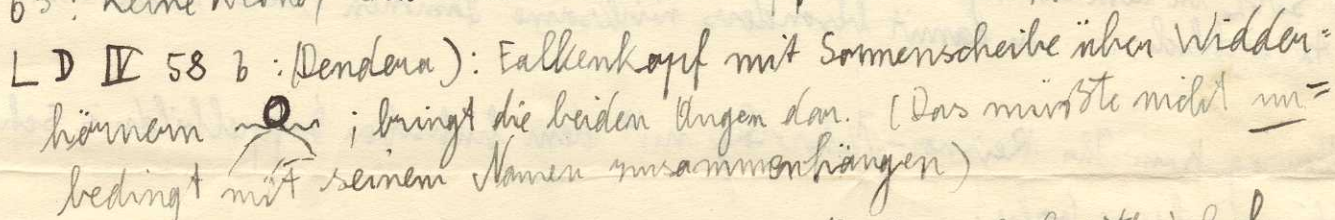 63: keine
LD IV 58 b: (Dendera): Falkenkopf mit Sonnenscheibe über Widder=
hörnern ; bringt die beiden Augen dar. (Das müßte nicht un=
bedingt mit seinem Namen zusammenhängen)